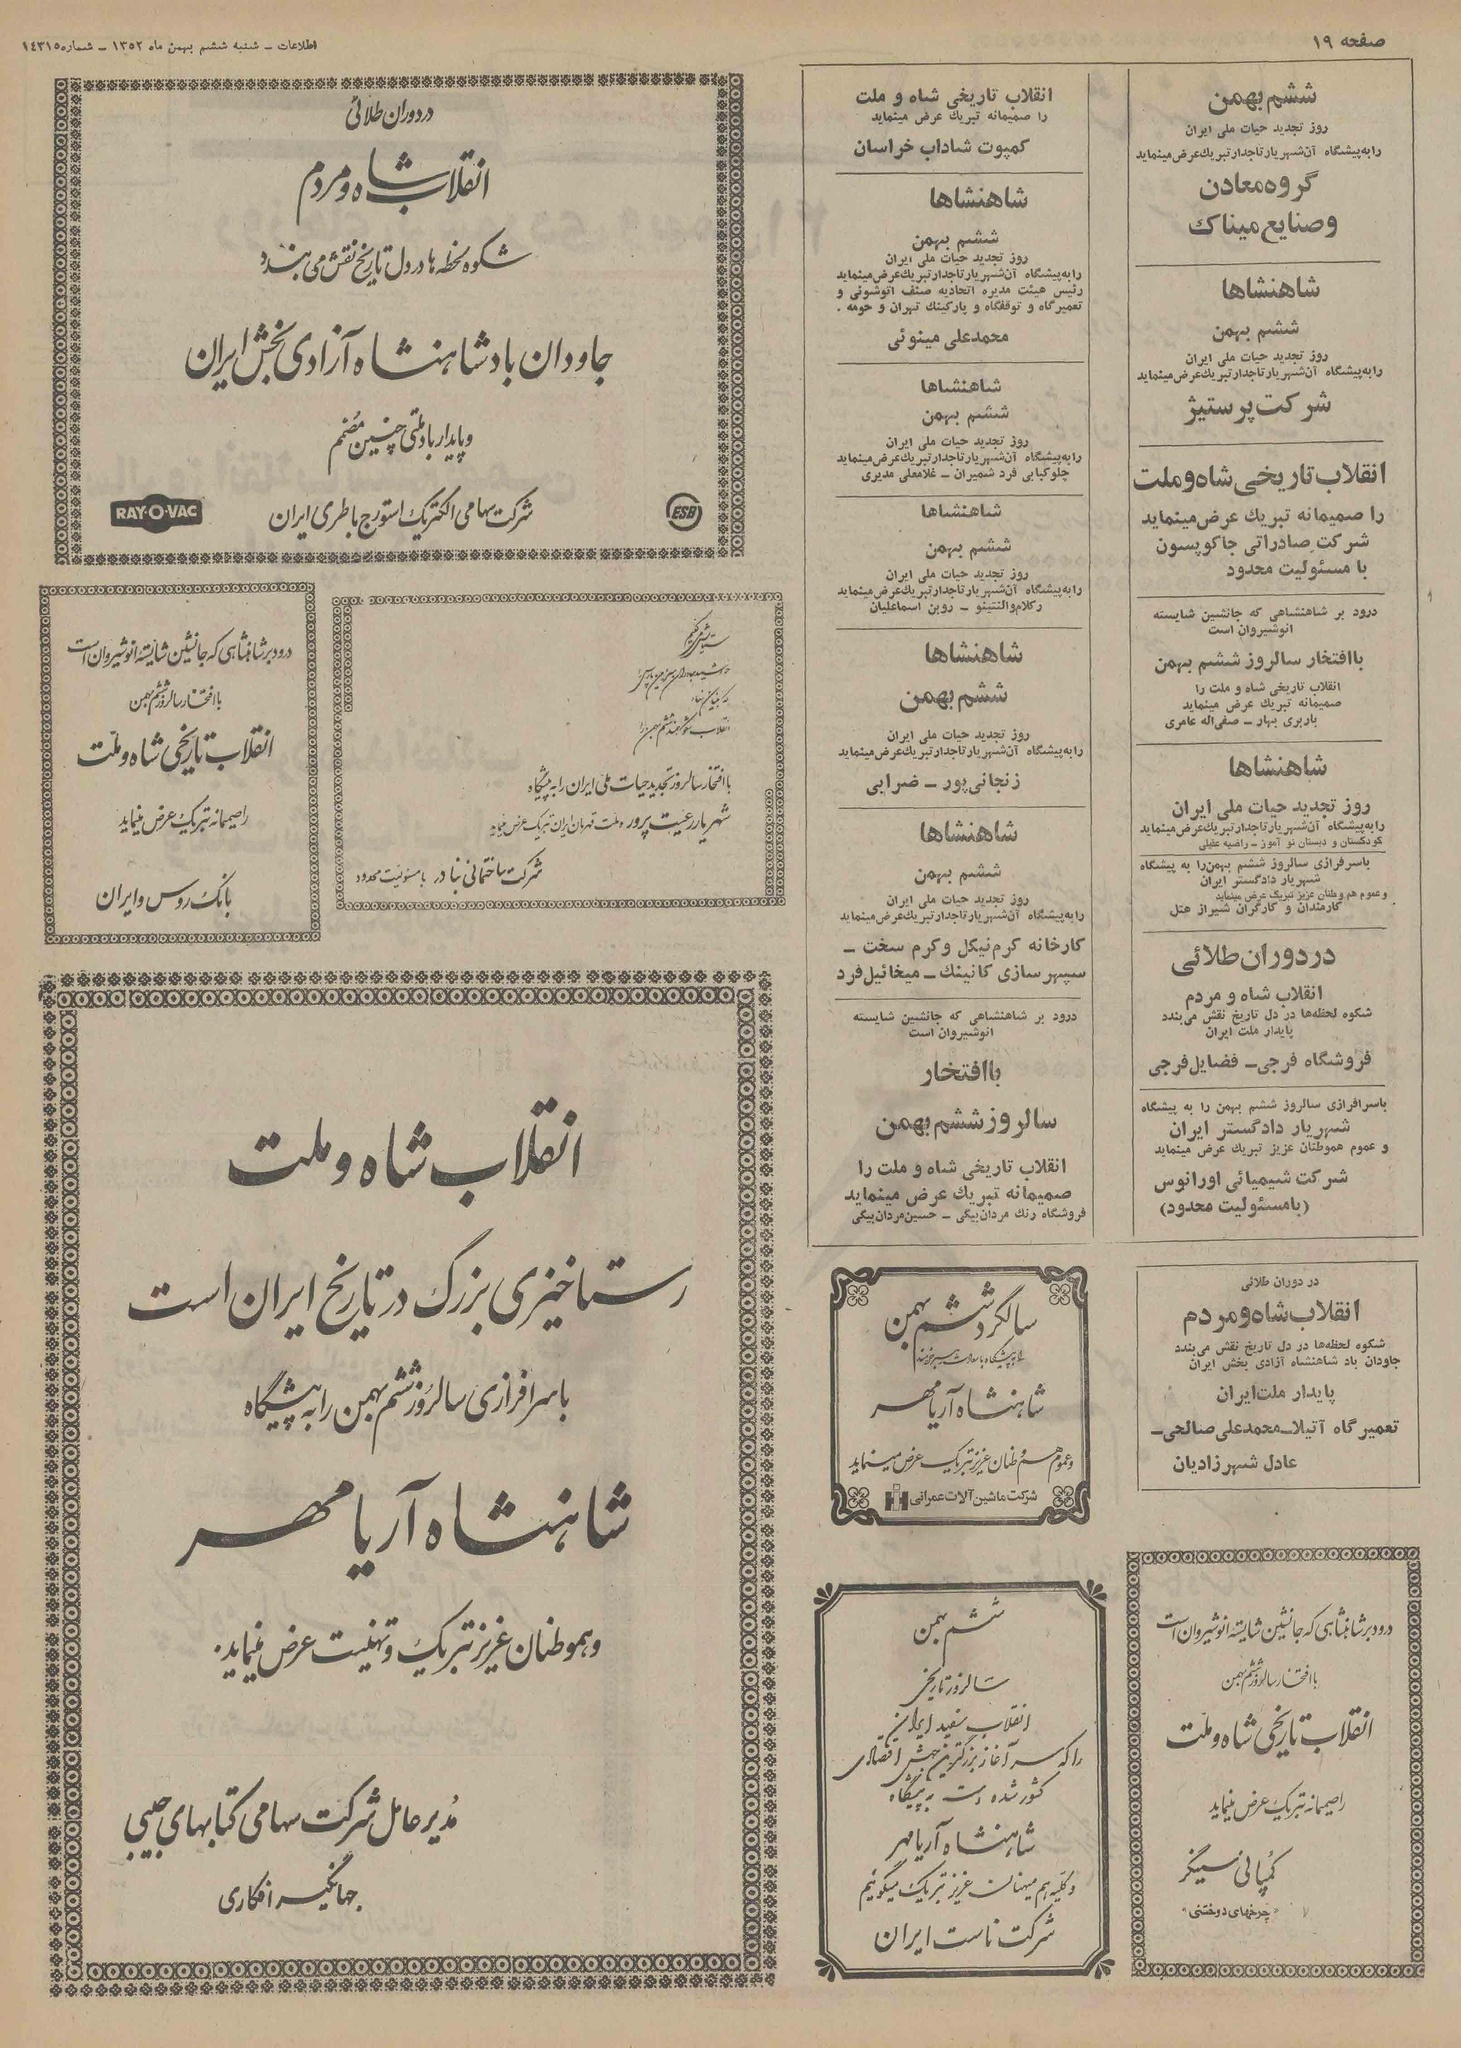 صفحه ۱۹
اطلاعات – شنبه ششم بهمن ماه ۱۳۵۲ – شماره ۱۴۳۱۵
ششم بهمن
روز تجدید حیات ملی ایران
را به پیشگاه آن شهریار تاجدار تبریك عرض مینماید
گروه معادن
وصنایع میناك
شاهنشاها
ششم بهمن
روز تجدید حیات ملی ایران
را به پیشگاه آن شهریار تاجدار تبریك عرض مینماید
شرکت پرستیژ
انقلاب تاریخی شاه و ملت
را صمیمانه تبریك عرض مینماید
شرکت صادراتی جاکوپسون
با مسئولیت محدود
درود بر شاهنشاهی که جانشین شایسته
انوشیروان است
باافتخار سالروز ششم بهمن
انقلاب تاریخی شاه و ملت را
صمیمانه تبریك عرض مینماید
باربری بهار – صفی‌اله عامری
شاهنشاها
روز تجدید حیات ملی ایران
را به پیشگاه آن شهریار تاجدار تبریك عرض مینماید
کودکستان و دبستان نو آموز – راضیه عقیلی
باسرفرازی سالروز ششم بهمن را به پیشگاه
شهریار دادگستر ایران
و عموم هم وطنان عزیز تبریك عرض مینماید
کارمندان و کارگران شیراز هتل
در دوران طلائی
انقلاب شاه و مردم
شکوه لحظه‌ها در دل تاریخ نقش می‌بندد
پایدار ملت ایران
فروشگاه فرجی – فضایل فرجی
باسرافرازی سالروز ششم بهمن را به پیشگاه
شهریار دادگستر ایران
و عموم هموطنان عزیز تبریك عرض مینماید
شرکت شیمیائی اورانوس
(بامسئولیت محدود)
انقلاب تاریخی شاه و ملت
را صمیمانه تبریك عرض مینماید
کمپوت شاداب خراسان
شاهنشاها
ششم بهمن
روز تجدید حیات ملی ایران
را به پیشگاه آن شهریار تاجدار تبریك عرض مینماید
رئیس هیئت مدیره اتحادیه صنف اتوشوئی و
تعمیرگاه و توقفگاه و پارکینك تهران و حومه .
محمدعلی مینوئی
شاهنشاها
ششم بهمن
روز تجدید حیات ملی ایران
را به پیشگاه آن شهریار تاجدار تبریك عرض مینماید
چلوکبابی فرد شمیران – غلامعلی مدیری
شاهنشاها
ششم بهمن
روز تجدید حیات ملی ایران
را به پیشگاه آن شهریار تاجدار تبریك عرض مینماید
رکلام والنتینو – روبن اسماعلیان
شاهنشاها
ششم بهمن
روز تجدید حیات ملی ایران
را به پیشگاه آن شهریار تاجدار تبریك عرض مینماید
زنجانی پور – ضرابی
شاهنشاها
ششم بهمن
روز تجدید حیات ملی ایران
را به پیشگاه آن شهریار تاجدار تبریك عرض مینماید
کارخانه کرم نیکل و کرم سخت –
سپهر سازی کانینك – میخائیل فرد
درود بر شاهنشاهی که جانشین شایسته
انوشیروان است
باافتخار
سالروز ششم بهمن
انقلاب تاریخی شاه و ملت را
صمیمانه تبریك عرض مینماید
فروشگاه رنك مردان بیگی – حسین مردان بیگی
در دوران طلائی
انقلاب شاه و مردم
شکوه لحظه ها در دل تاریخ نقش می بندد
جاودان باد شاهنشاه آزادی بخش ایران
و پایدار باد ملتی چنین مصمم
شرکت سهامی الکتریک استورج باطری ایران
ESB
RAY-O-VAC
انقلاب شکوهمند ششم بهمن را
با افتخار سالروز تجدید حیات ملی ایران را به پیشگاه
شهریار رعیت پرور و ملت قهرمان ایران تبریک عرض مینماید
شرکت ساختمانی بنادر با مسئولیت محدود
درود بر شاهنشاهی که جانشین شایسته انوشیروان است
با افتخار سالروز ششم بهمن
انقلاب تاریخی شاه و ملت
را صمیمانه تبریک عرض مینماید
بانک روس و ایران
انقلاب شاه و ملت
رستاخیزی بزرگ در تاریخ ایران است
با سرافرازی سالروز ششم بهمن را به پیشگاه
شاهنشاه آریامهر
و هموطنان عزیز تبریک و تهنیت عرض مینماید.
مدیر عامل شرکت سهامی کتابهای جیبی
جهانگیر افکاری
در دوران طلائی
انقلاب شاه و مردم
شکوه لحظه‌ها در دل تاریخ نقش می‌بندد
جاودان باد شاهنشاه آزادی بخش ایران
پایدار ملت ایران
تعمیر گاه آتیلا – محمدعلی صالحی –
عادل شهرزادیان
سالگرد ششم بهمن
شاهنشاه آریامهر
و عموم هموطنان عزیز تبریک عرض مینماید
شرکت ماشین آلات عمرانی
ششم بهمن
سالروز تاریخی
انقلاب سفید ایران
را که سرآغاز بزرگترین جهش اقتصادی
کشور شده است به پیشگاه
شاهنشاه آریامهر
و کلیه هم میهنان عزیز تبریک میگوئیم
شرکت ناست ایران
درود بر شاهنشاهی که جانشین شایسته انوشیروان است
با افتخار سالروز ششم بهمن
انقلاب تاریخی شاه و ملت
را صمیمانه تبریک عرض مینماید
کمپانی سینگر
«چرخهای دوختنی»